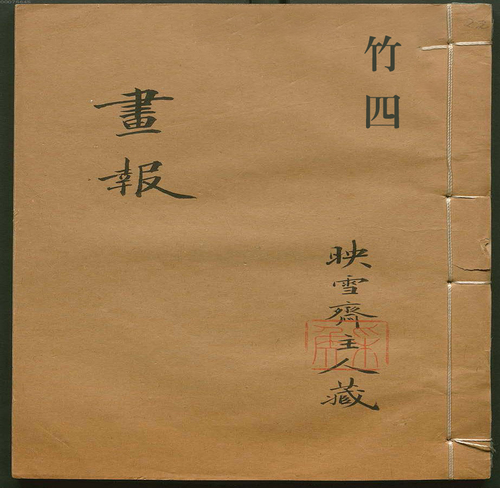 竹四
映雪齋主人藏
畫報